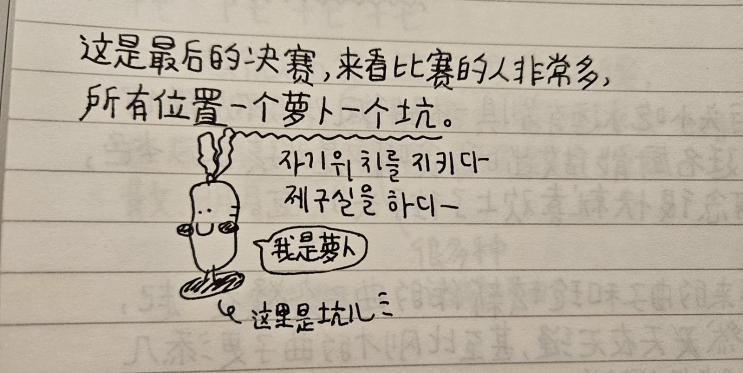 这是最后的决赛,来看比赛的人非常多,
所有位置一个萝卜一个坑。
자기위치를 지키다
제구실을 하다
我是萝卜
这里是坑儿